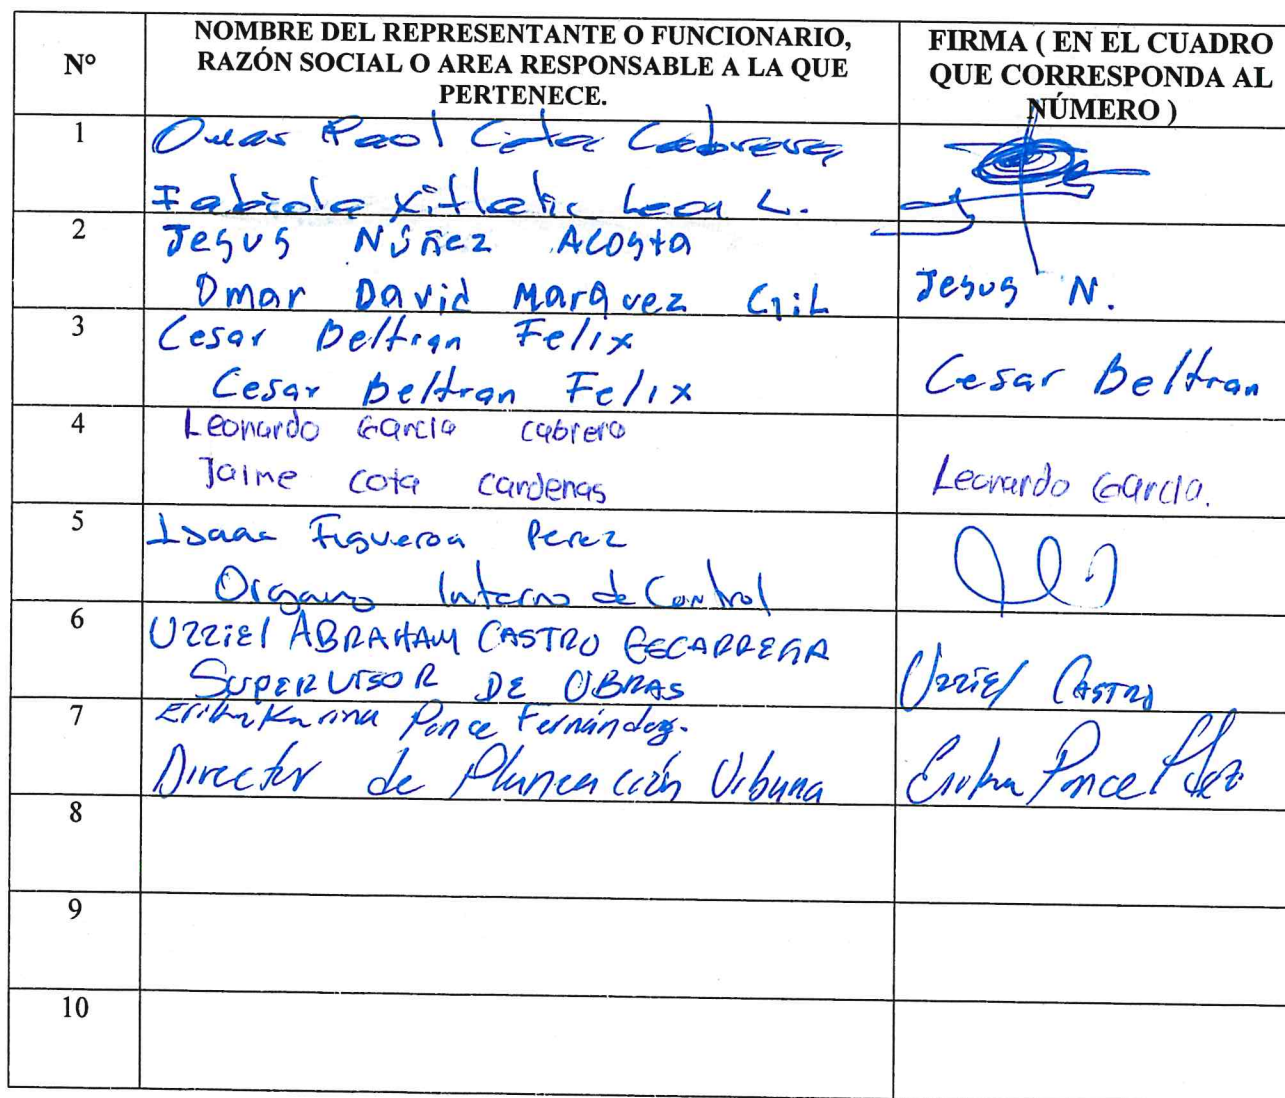 N°
NOMBRE DEL REPRESENTANTE O FUNCIONARIO,
RAZÓN SOCIAL O AREA RESPONSABLE A LA QUE
PERTENECE.
FIRMA ( EN EL CUADRO
QUE CORRESPONDA AL
NÚMERO )
1
Omar Paol Cota Cabrera
Fabiola Xitlalic Leon L.
2
Jesus Núñez Acosta
Omar David Marquez Gil
Jesus N.
3
Cesar Beltran Felix
Cesar Beltran Felix
Cesar Beltran
4
Leonardo Garcia cabrera
Jaime cota cardenas
Leonardo Garcia.
5
Isaac Figueroa Perez
Organo Interno de Control
6
Uzziel ABRAHAM CASTRO ESCARREGA
SUPERVISOR DE OBRAS
Uzziel CASTRO
7
Erika Karina Ponce Fernández.
Director de Planeación Urbana
Erika Ponce Fdez
8
9
10